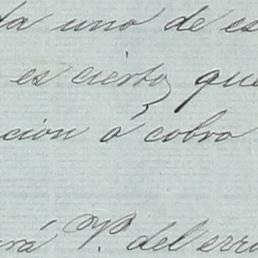 da uno de es
es cierto, que
ción á cobra
ará V. del erro